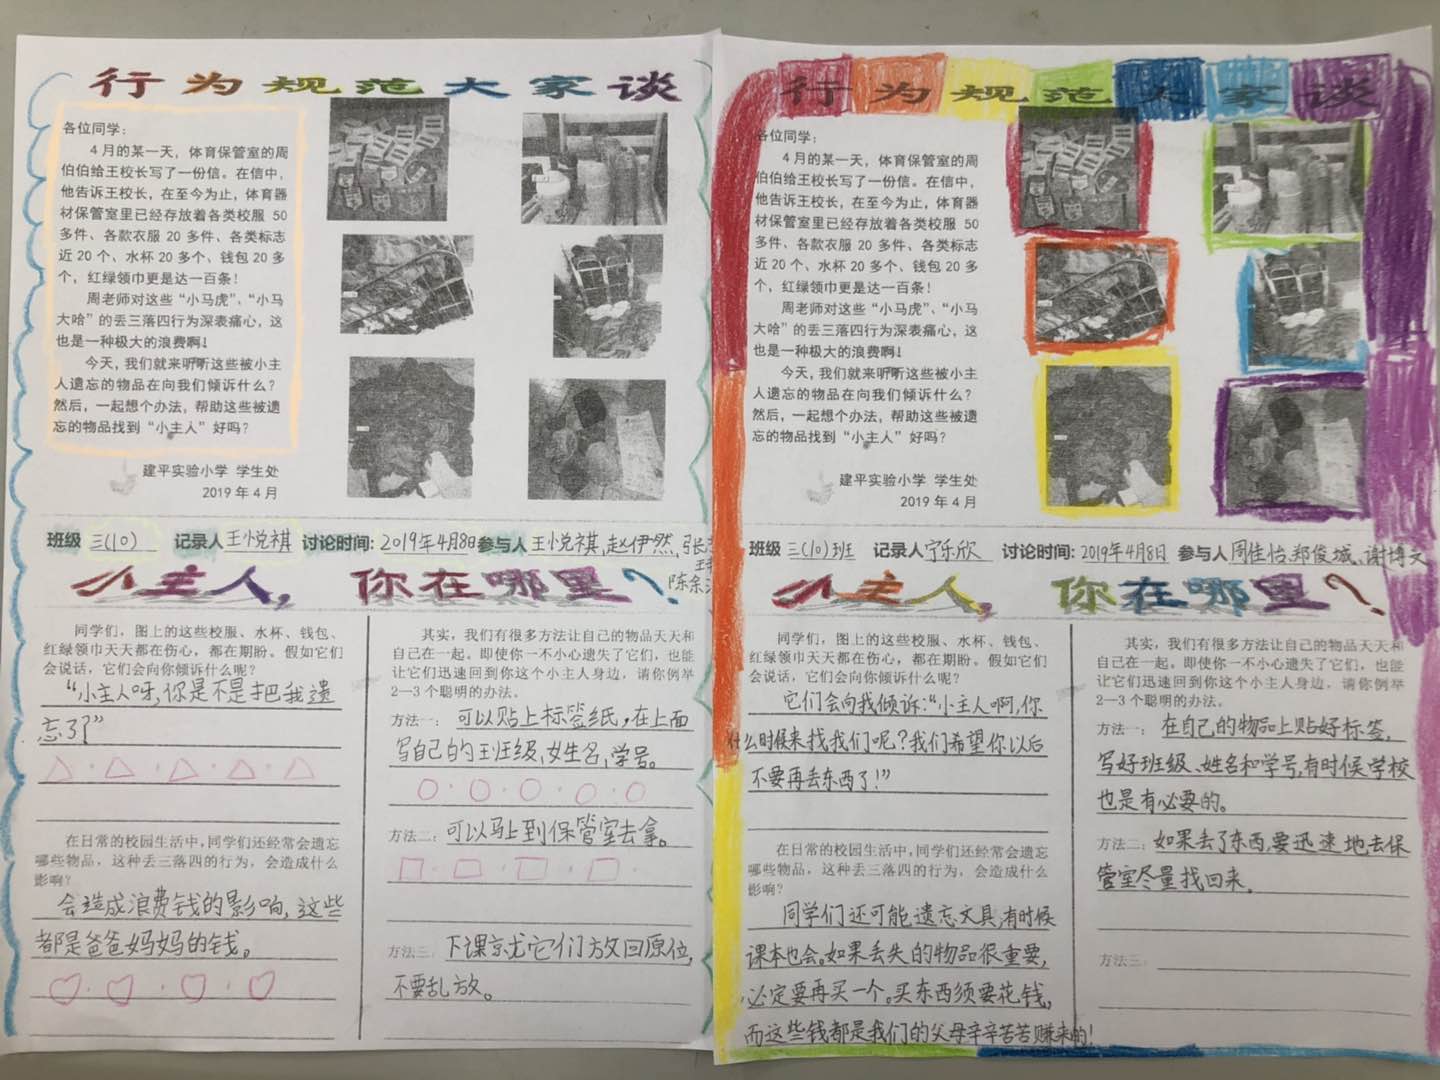 行为规范大家谈
各位同学：
4月的某一天，体育保管室的周
伯伯给王校长写了一份信。在信中，
他告诉王校长，在至今为止，体育器
材保管室里已经存放着各类校服 50
多件、各款衣服 20 多件、各类标志
近 20 个、水杯 20 多个、钱包 20 多
个，红绿领巾更是达一百条！
周老师对这些“小马虎”、“小马
大哈”的丢三落四行为深表痛心，这
也是一种极大的浪费啊！
今天，我们就来听听这些被小主
人遗忘的物品在向我们倾诉什么？
然后，一起想个办法，帮助这些被遗
忘的物品找到“小主人”好吗？
建平实验小学 学生处
2019 年 4 月
班级 三(10) 记录人 王悦祺 讨论时间：2019年4月8日 参与人 王悦祺,赵伊然,张
陈余
小主人，你在哪里？
同学们，图上的这些校服、水杯、钱包、
红绿领巾天天都在伤心，都在期盼。假如它们
会说话，它们会向你倾诉什么呢？
“小主人呀,你是不是把我遗
忘了”
在日常的校园生活中，同学们还经常会遗忘
哪些物品，这种丢三落四的行为，会造成什么
影响？
会造成浪费钱的影响,这些
都是爸爸妈妈的钱。
其实，我们有很多方法让自己的物品天天和
自己在一起。即使你一不小心遗失了它们，也能
让它们迅速回到你这个小主人身边，请你例举
2—3 个聪明的办法。
方法一：可以贴上标签纸,在上面
写自己的班级,姓名,学号。
方法二：可以马上到保管室去拿。
方法三：下课就它们放回原位,
不要乱放。
行为规范大家谈
各位同学：
4月的某一天，体育保管室的周
伯伯给王校长写了一份信。在信中，
他告诉王校长，在至今为止，体育器
材保管室里已经存放着各类校服 50
多件、各款衣服 20 多件、各类标志
近 20 个、水杯 20 多个、钱包 20 多
个，红绿领巾更是达一百条！
周老师对这些“小马虎”、“小马
大哈”的丢三落四行为深表痛心，这
也是一种极大的浪费啊！
今天，我们就来听听这些被小主
人遗忘的物品在向我们倾诉什么？
然后，一起想个办法，帮助这些被遗
忘的物品找到“小主人”好吗？
建平实验小学 学生处
2019 年 4 月
班级 三(10)班 记录人 宁乐欣 讨论时间：2019年4月8日 参与人 周佳怡、郑俊城、谢博文
小主人，你在哪里？
同学们，图上的这些校服、水杯、钱包、
红绿领巾天天都在伤心，都在期盼。假如它们
会说话，它们会向你倾诉什么呢？
它们会向我倾诉:“小主人啊,你
什么时候来找我们呢?我们希望你以后
不要再丢东西了!”
在日常的校园生活中，同学们还经常会遗忘
哪些物品，这种丢三落四的行为，会造成什么
影响？
同学们还可能遗忘文具,有时候
课本也会。如果丢失的物品很重要,
必定要再买一个。买东西须要花钱,
而这些钱都是我们的父母辛辛苦苦赚来的!
其实，我们有很多方法让自己的物品天天和
自己在一起。即使你一不小心遗失了它们，也能
让它们迅速回到你这个小主人身边，请你例举
2—3 个聪明的办法。
方法一：在自己的物品上贴好标签,
写好班级、姓名和学号,有时候学校
也是有必要的。
方法二：如果丢了东西,要迅速地去保
管室尽量找回来。
方法三：